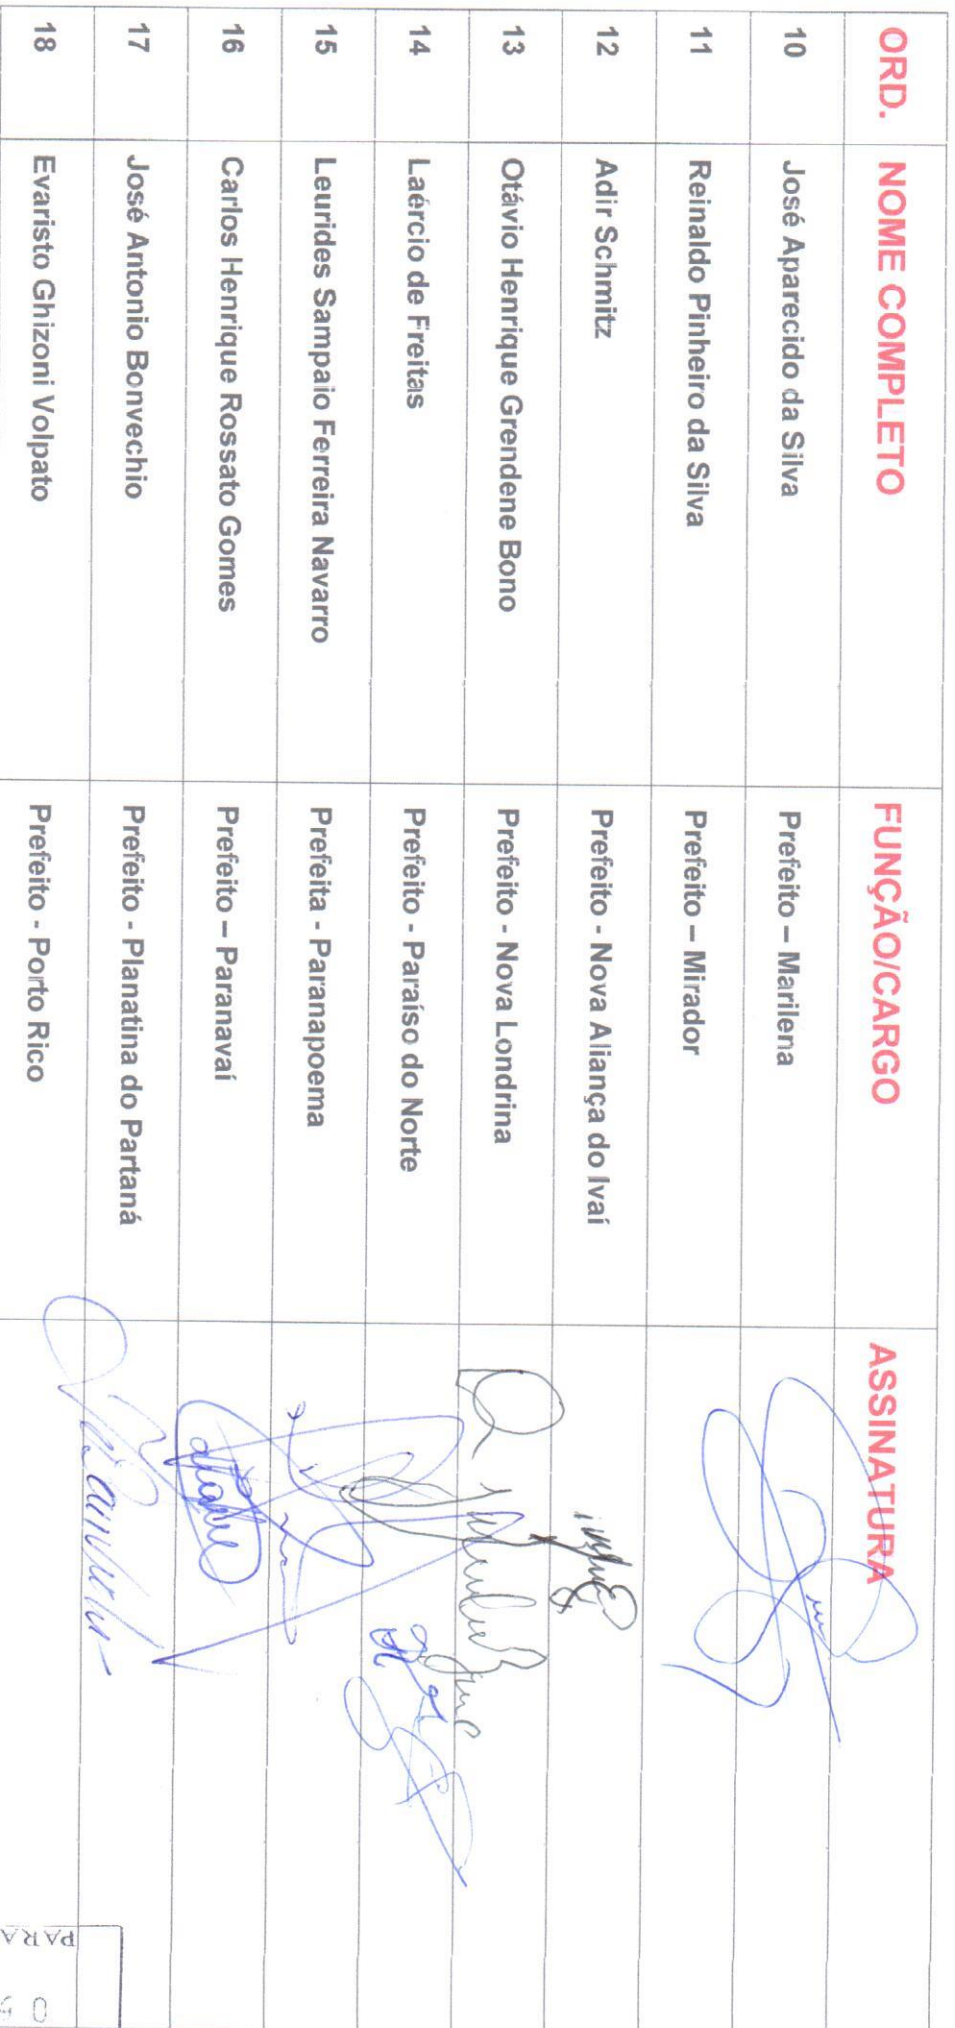 ORD. NOME COMPLETO FUNÇÃO/CARGO ASSINATURA
10 José Aparecido da Silva Prefeito – Marilena
11 Reinaldo Pinheiro da Silva Prefeito – Mirador
12 Adir Schmitz Prefeito - Nova Aliança do Ivaí
13 Otávio Henrique Grendene Bono Prefeito - Nova Londrina
14 Laércio de Freitas Prefeito - Paraíso do Norte
15 Leurides Sampaio Ferreira Navarro Prefeita - Paranapoema
16 Carlos Henrique Rossato Gomes Prefeito – Paranavaí
17 José Antonio Bonvechio Prefeito - Planatina do Partaná
18 Evaristo Ghizoni Volpato Prefeito - Porto Rico
PARA